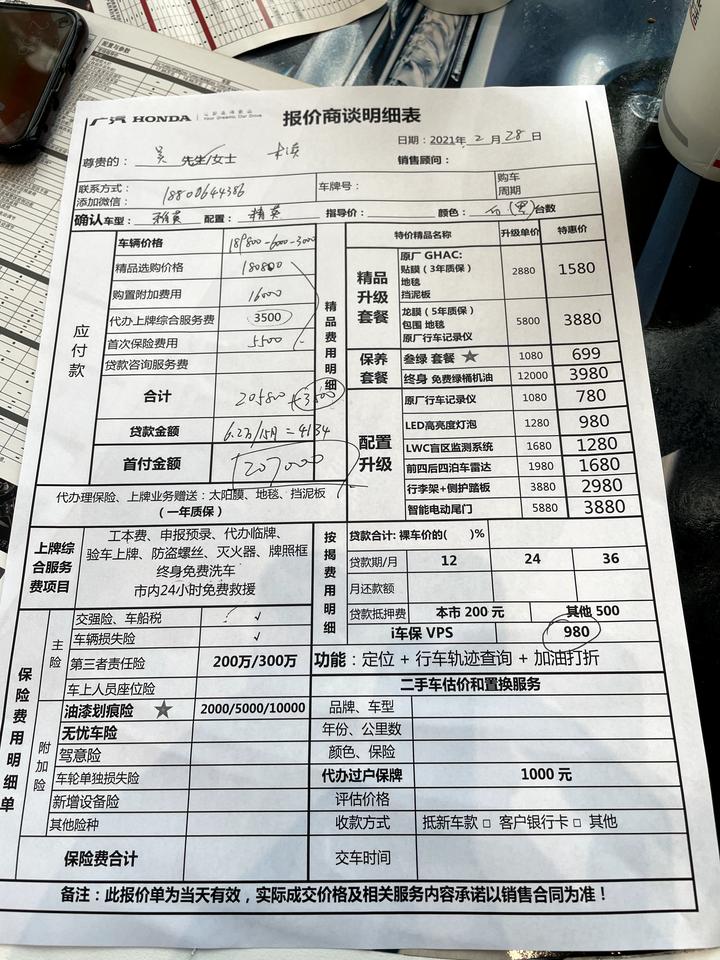 配置与参数
广汽 HONDA
Your Dreams, Our Drive
报价商谈明细表
日期：2021年 2 月 28 日
尊贵的： 吴 先生/女士
销售顾问：
联系方式：
添加微信：
18800644386
车牌号：
购车
周期
确认车型： 雅英 配置： 精英 指导价： 颜色： 台数
应付款
车辆价格 189800-6000-3000
精品选购价格 180800
购置附加费用 16000
代办上牌综合服务费 3500
首次保险费用 5500
贷款咨询服务费
合计 205800 +3500
贷款金额 6.2万/15月=4134
首付金额 207000
代办理保险、上牌业务赠送：太阳膜、地毯、挡泥板
（一年质保）
精品费用明细
特价精品名称 升级单价 特惠价
精品升级套餐
原厂 GHAC:
贴膜（3年质保）
地毯
挡泥板
2880 1580
龙膜（5年质保）
包围 地毯
原厂行车记录仪
5800 3880
保养套餐
叁绿 套餐 ★ 1080 699
终身 免费绿桶机油 12000 3980
配置升级
原厂行车记录仪 1080 780
LED高亮度灯泡 1280 980
LWC盲区监测系统 1680 1280
前四后四泊车雷达 1980 1680
行李架+侧护踏板 3880 2980
智能电动尾门 5880 3880
上牌综合服务费项目
工本费、申报预录、代办临牌、
验车上牌、防盗螺丝、灭火器、牌照框
终身免费洗车
市内24小时免费救援
按揭费用明细
贷款合计: 裸车价的( )%
贷款期/月 12 24 36
月还款额
贷款抵押费 本市 200 元 其他 500
i车保 VPS 980
功能：定位 + 行车轨迹查询 + 加油打折
保险费用明细单
主险
交强险、车船税 ✓
车辆损失险 ✓
第三者责任险 200万/300万
车上人员座位险
附加险
油漆划痕险 ★ 2000/5000/10000
无忧车险
驾意险
车轮单独损失险
新增设备险
其他险种
保险费合计
二手车估价和置换服务
品牌、车型
年份、公里数
颜色、保险
代办过户保牌 1000 元
评估价格
收款方式 抵新车款 □ 客户银行卡 □ 其他
交车时间
备注：此报价单为当天有效，实际成交价格及相关服务内容承诺以销售合同为准！